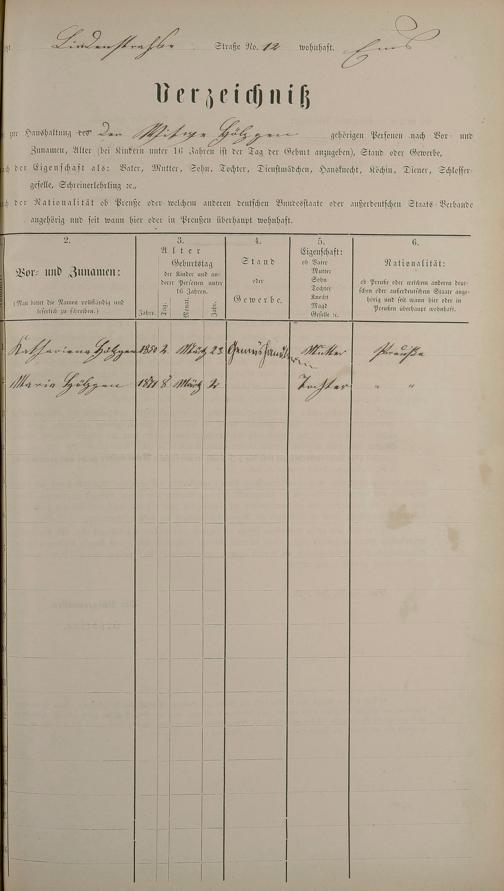 Lindenstraße Straße No. 12 wohnhaft. Ems
Verzeichniß
zur Haushaltung des Den Witwe gehörigen Personen nach Vor- und
Zunamen, Alter (bei Kindern unter 16 Jahren ist der Tag der Geburt anzugeben), Stand oder Gewerbe,
nach der Eigenschaft als: Vater, Mutter, Sohn, Tochter, Dienstmädchen, Hausknecht, Köchin, Diener, Schlosser-
geselle, Schreinerlehrling ꝛc.,
nach der Nationalität ob Preuße oder welchem anderen deutschen Bundesstaate oder außerdeutschen Staats-Verbande
angehörig und seit wann hier oder in Preußen überhaupt wohnhaft.
2.
Vor- und Zunamen:
(Man bittet die Namen vollständig und
leserlich zu schreiben.)
3.
Alter
Geburtstag
der Kinder und an-
derer Personen unter
16 Jahren.
Jahre. Tag. Monat. Jahr.
4.
Stand
oder
Gewerbe.
5.
Eigenschaft:
ob Vater
Mutter
Sohn
Tochter
Knecht
Magd
Geselle ꝛc.
6.
Nationalität:
ob Preuße oder welchem anderen deut-
schen oder außerdeutschen Staate ange-
hörig und seit wann hier oder in
Preußen überhaupt wohnhaft.
Katharina 1850 2 März 23 Mutter Preuße
Maria 1871 8 März 2 Tochter " "